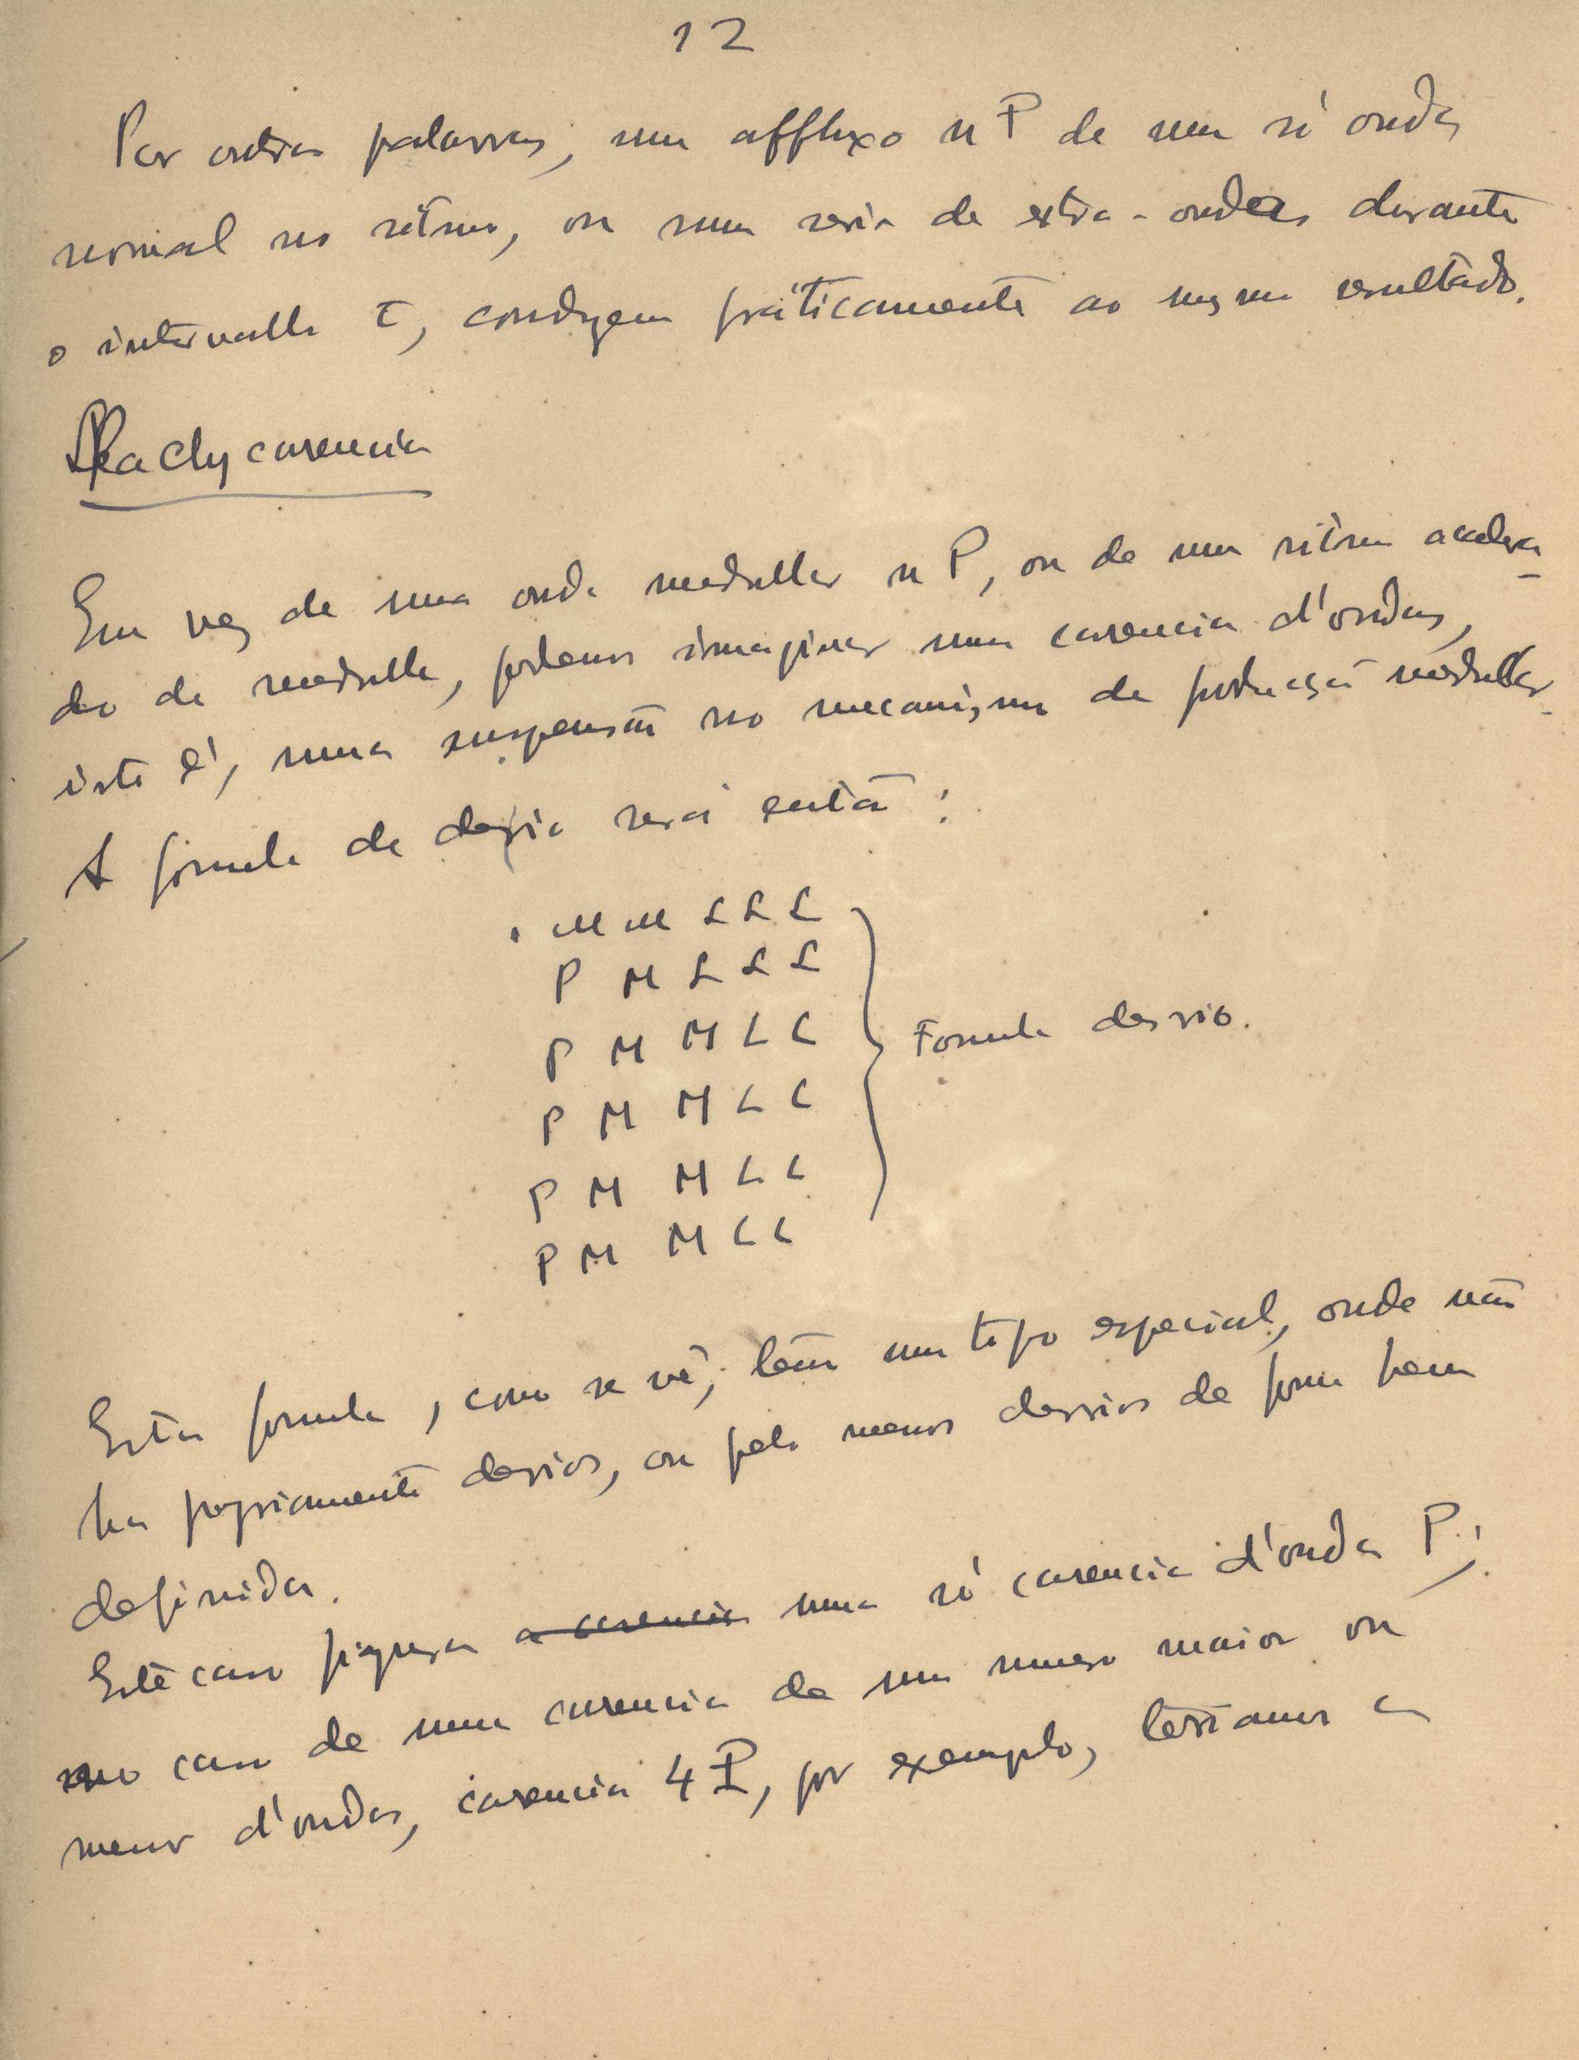 12
Por outras palavras, um affluxo n P de uma só onda,
normal no ritmo, ou uma serie de extra-ondas durante
o intervallo τ, conduzem práticamente ao mesmo resultado.
Rachycarencia
Em vez de uma onda medullar n P, ou de um ritmo accelera-
do da medulla, podemos imaginar uma carencia d'ondas,
isto é, uma suspensão no mecanismo da producção medullar.
A formula de desvio será então:
. M M L L L
P M L L L
P M M L L
P M M L L
P M M L L
P M M L L
Formula desvio.
Esta formula, como se vê, tem um tipo especial, onde não
ha propriamente desvios, ou pelo menos desvios de forma bem
definida.
Este caso figura a carencia uma só carencia d'onda P;
no caso de uma carencia de um numero maior ou
menor d'ondas, carencia 4 P, por exemplo, teriamos a